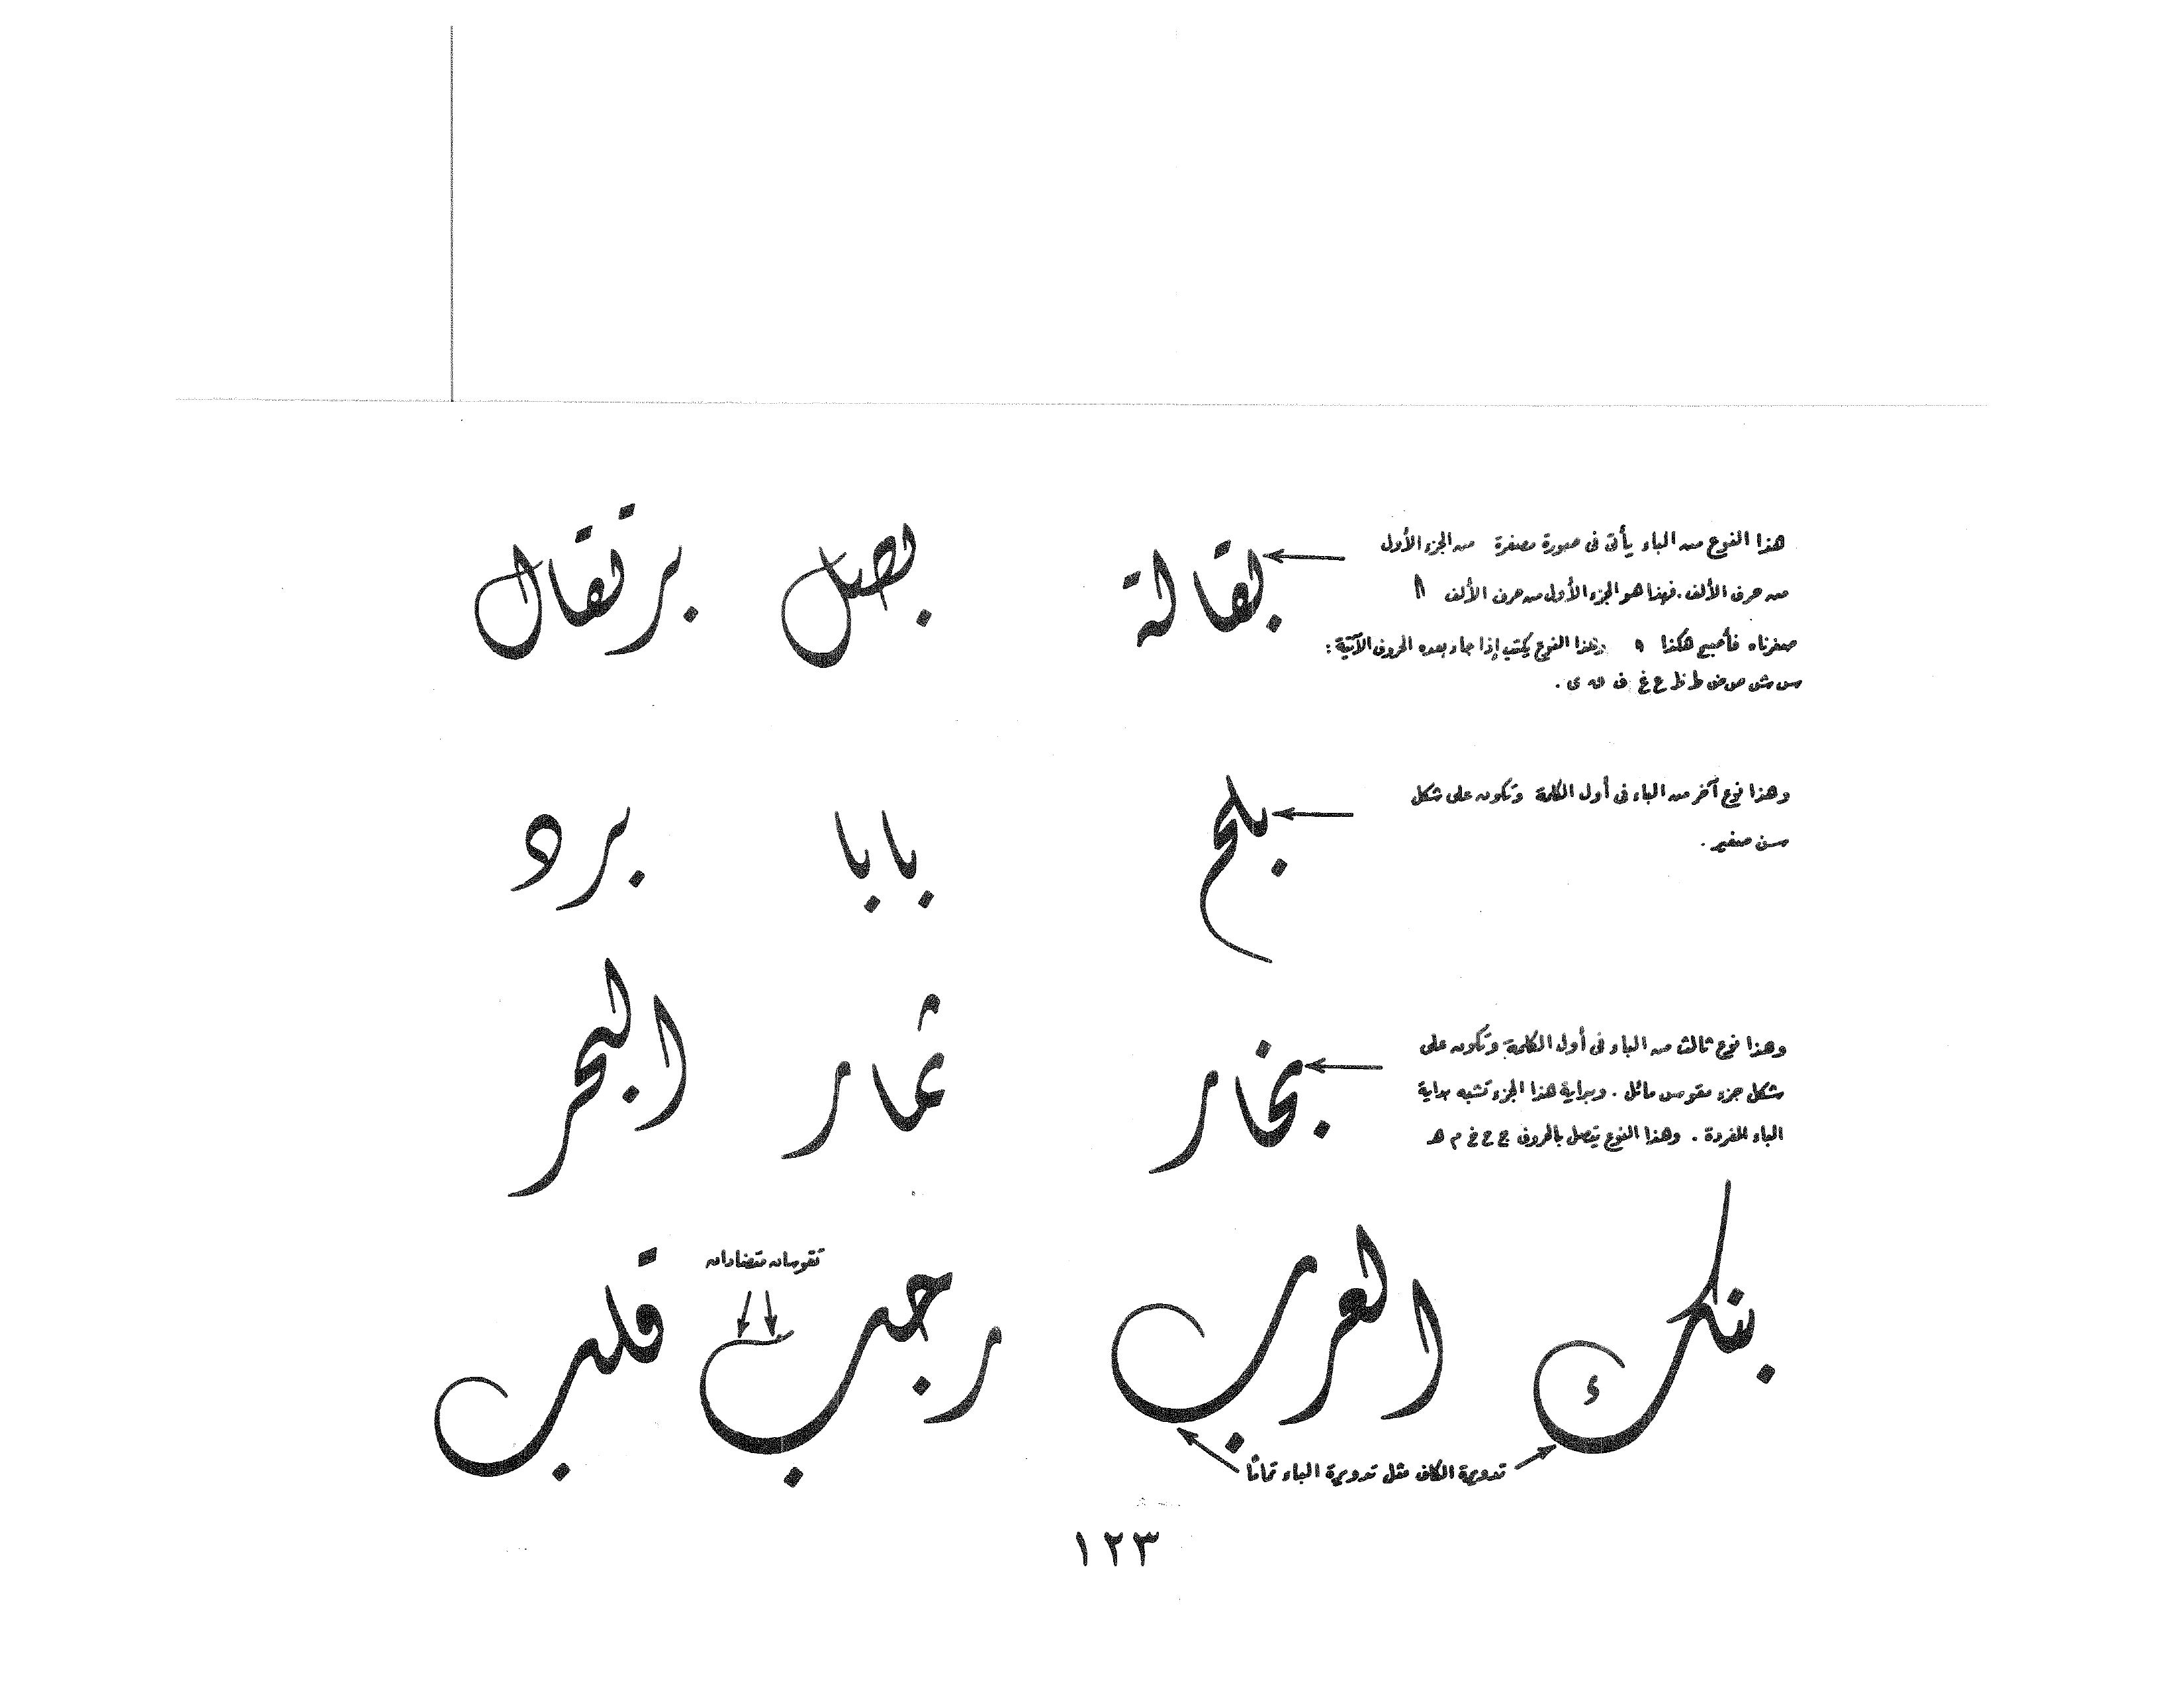 هذا النوع من الباء يأتى فى صورة مصغرة من الجزء الأول
بقالة بصل برتقال
من حرف الألف . فهذا هو الجزء الأول من حرف الألف
صغرناه فأصبح هكذا وهذا النوع يكتب إذا جاء بعده الحروف الآتية :
س ش ص ض ط ظ ع غ ف ق ى .
وهذا نوع آخر من الباء فى أول الكلمة وتكون على شكل
بلح بابا برد
سن صغير .
وهذا نوع ثالث من الباء فى أول الكلمة وتكون على
بخار ثمار البحر
شكل جزء مقوس مائل . وبداية هذا الجزء تشبه بداية
الباء المفردة . وهذا النوع يتصل بالحروف ج ح خ م هـ
تقوسان متضادان
بنك العرب رجب قلب
تدويرة الكاف مثل تدويرة الباء تمامًا
١٢٣